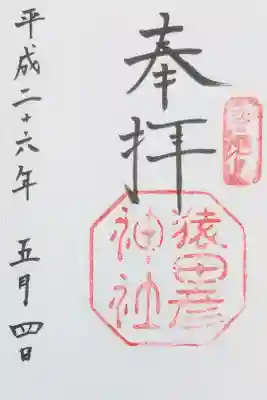 奉拝
猿田彦
神社
平成二十六年 五月四日